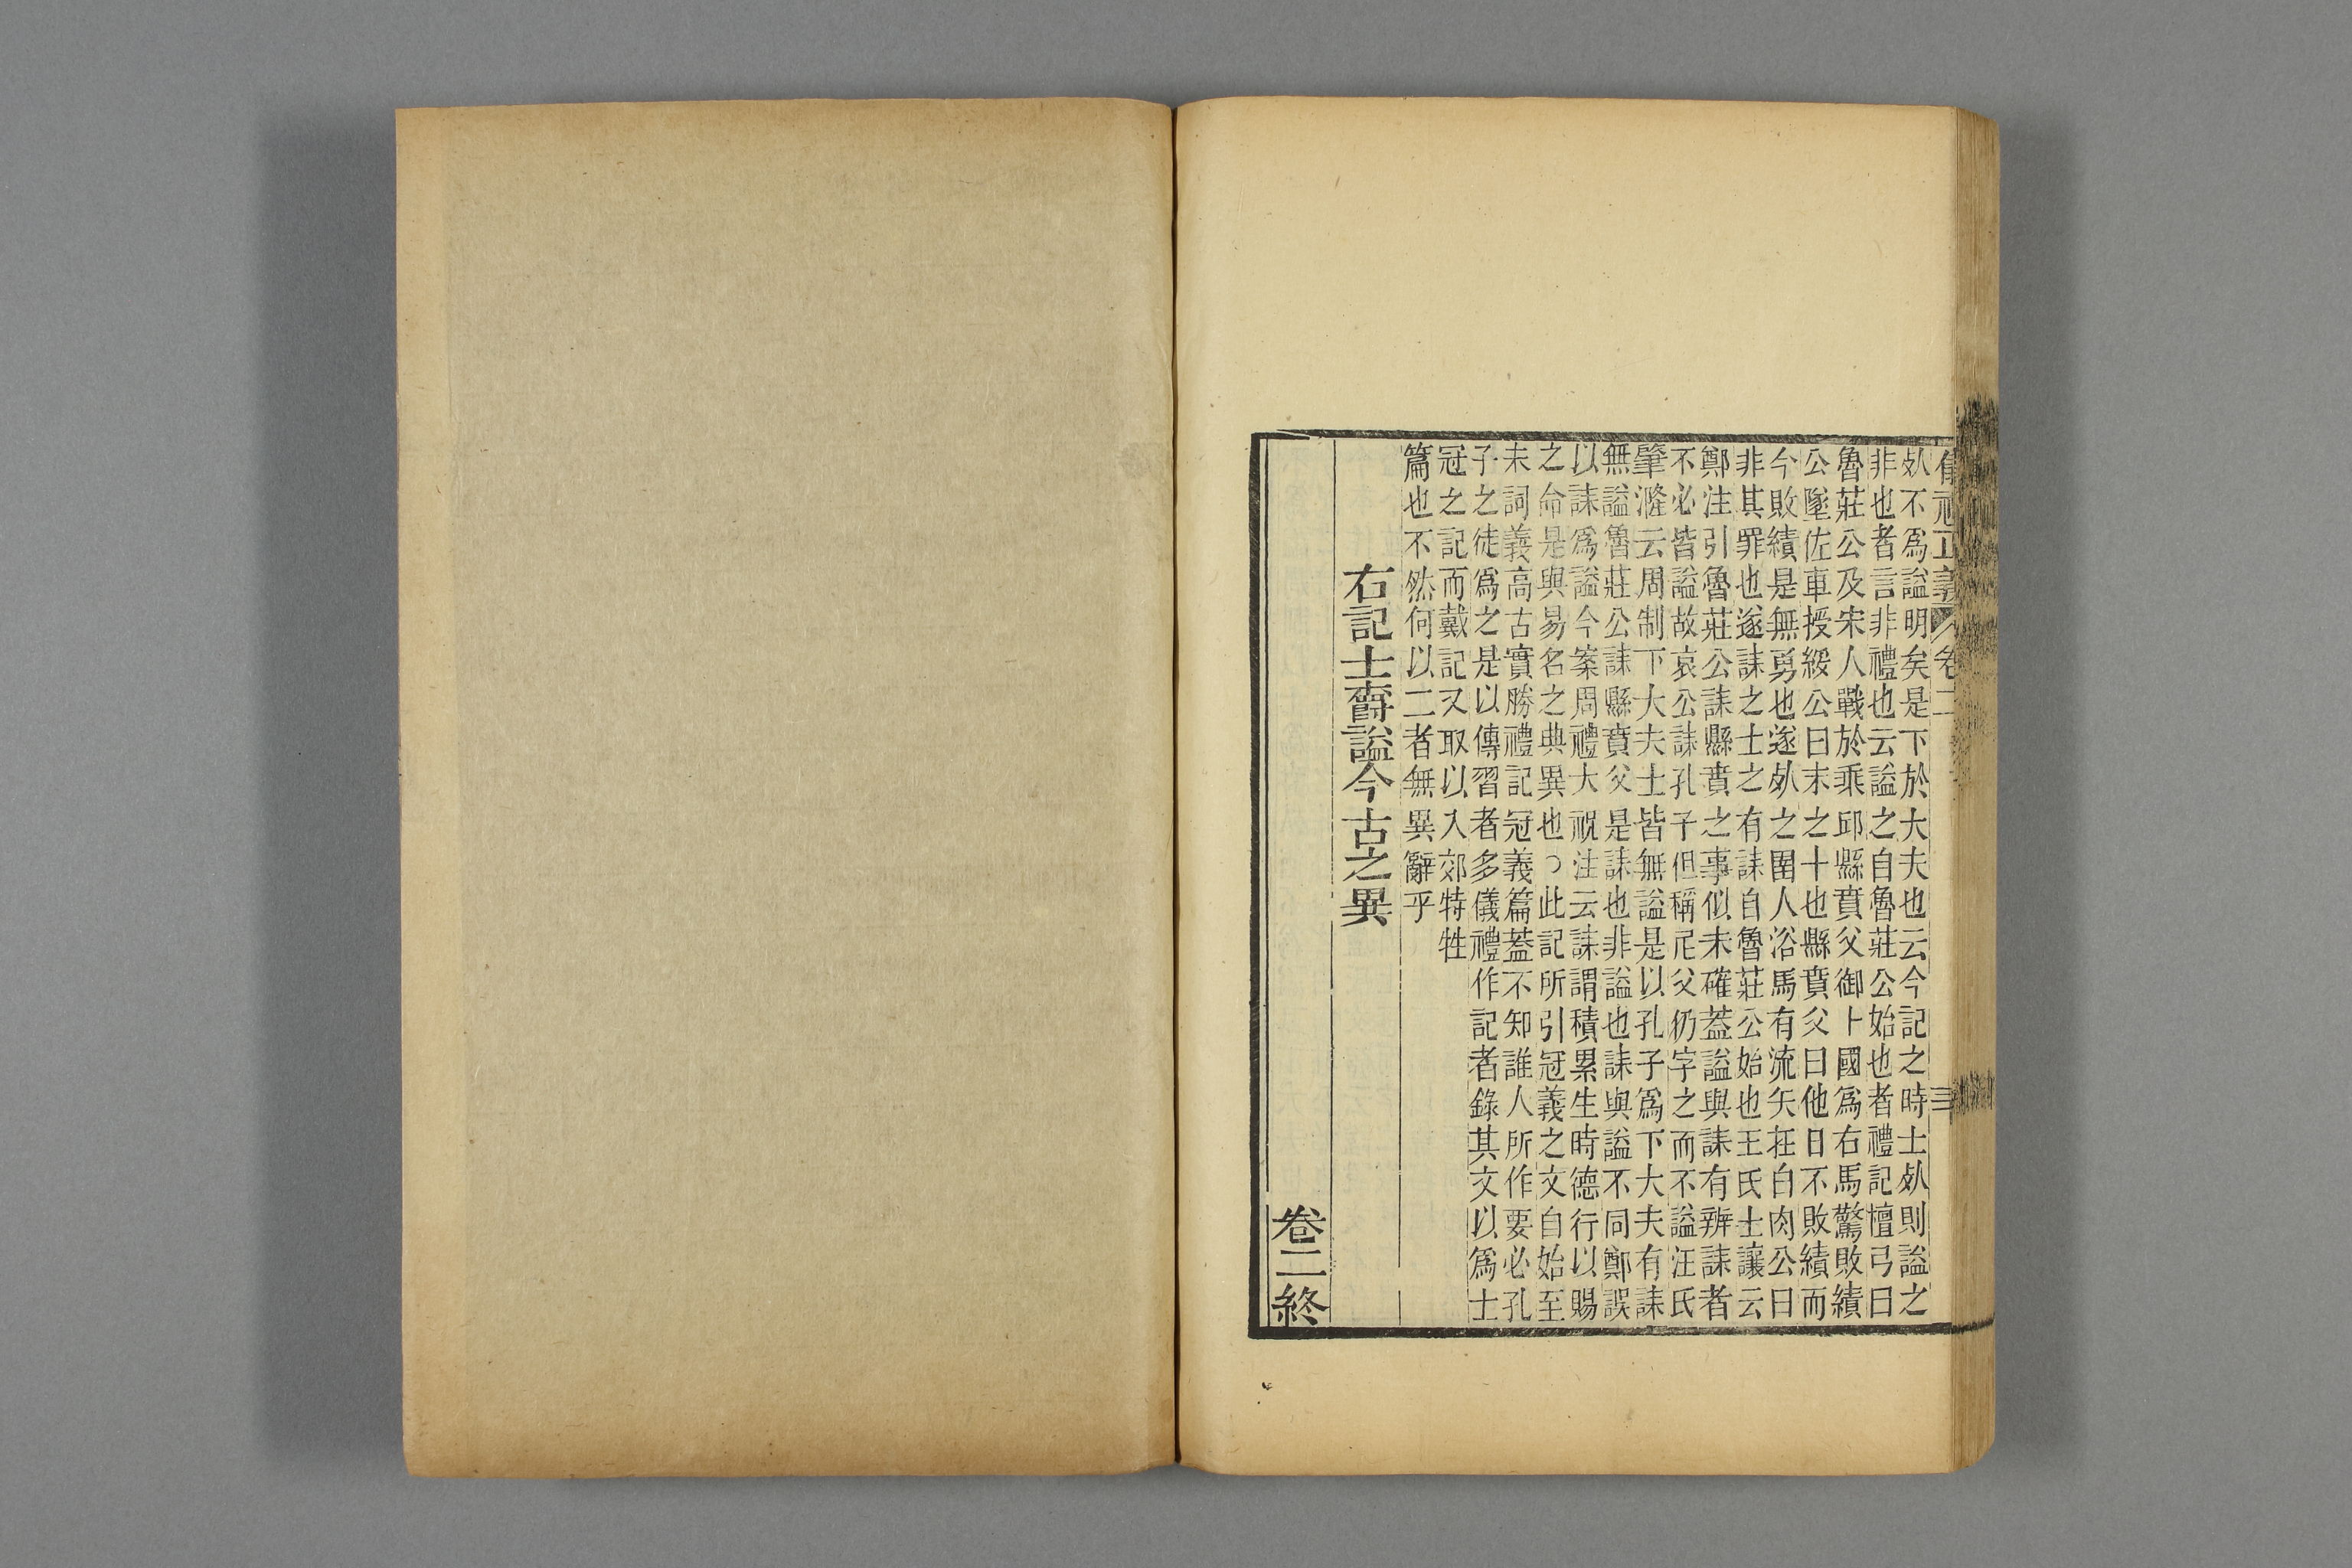 儀禮正義 卷二
㱙不爲謚明矣是下於大夫也云今記之時士㱙則謚之
非也者言非禮也云謚之自魯莊公始也者禮記檀弓曰
魯莊公及宋人戰於乘邱縣賁父御卜國爲右馬驚敗績
公墜佐車授綏公曰末之卜也縣賁父曰他日不敗績而
今敗績是無勇也遂㱙之圉人浴馬有流矢在白肉公曰
非其罪也遂誄之士之有誄自魯莊公始也王氏士讓云
鄭注引魯莊公誄縣賁之事似未確蓋謚與誄有辨誄者
不必皆謚故哀公誄孔子但稱尼父仍字之而不謚汪氏
肇漋云周制下大夫士皆無謚是以孔子爲下大夫有誄
無謚魯莊公誄縣賁父是誄也非謚也誄與謚不同鄭誤
以誄爲謚今案周禮大祝注云誄謂積累生時德行以賜
之命是與易名之典異也○此記所引冠義之文自始至
末詞義高古實勝禮記冠義篇蓋不知誰人所作要必孔
子之徒爲之是以傳習者多儀禮作記者錄其文以爲士
冠之記而戴記又取以入郊特牲
篇也不然何以二者無異辭乎
右記士爵謚今古之異
卷二終